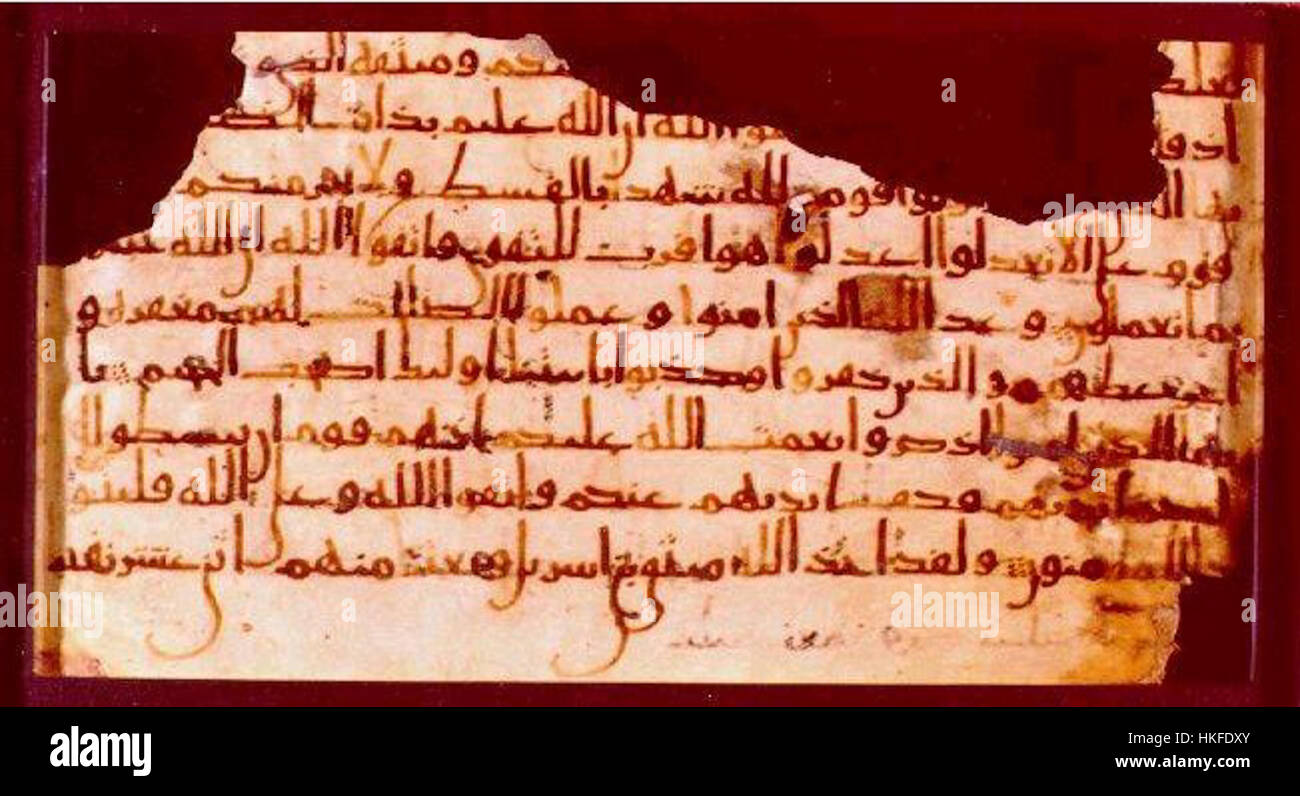 وميثقه الذي
اذ قلـ الله ان الله عليم بذات الصد
لله شهدا بالقسط ولا يجرمنكم
قوم على الا تعدلوا اعدلوا هو اقرب للتقوى واتقوا الله ان الله خبير
بما تعملون وعد الله الذين امنوا وعملوا الصلحت لهم مغفرة و
اجر عظيم والذين كفروا وكذبوا بايتنا اوليك اصحب الجحيم يا
يها الذين امنوا اذكروا نعمت الله عليكم اذ هم قوم ان يبسطوا ال
ايديهم فكف ايديهم عنكم واتقوا الله وعلى الله فليتو
المومنون ولقد اخذ الله ميثق بني اسريل وبعثنا منهم اثني عشر نقيبا
alamy
Image ID: HKFDXY
www.alamy.com